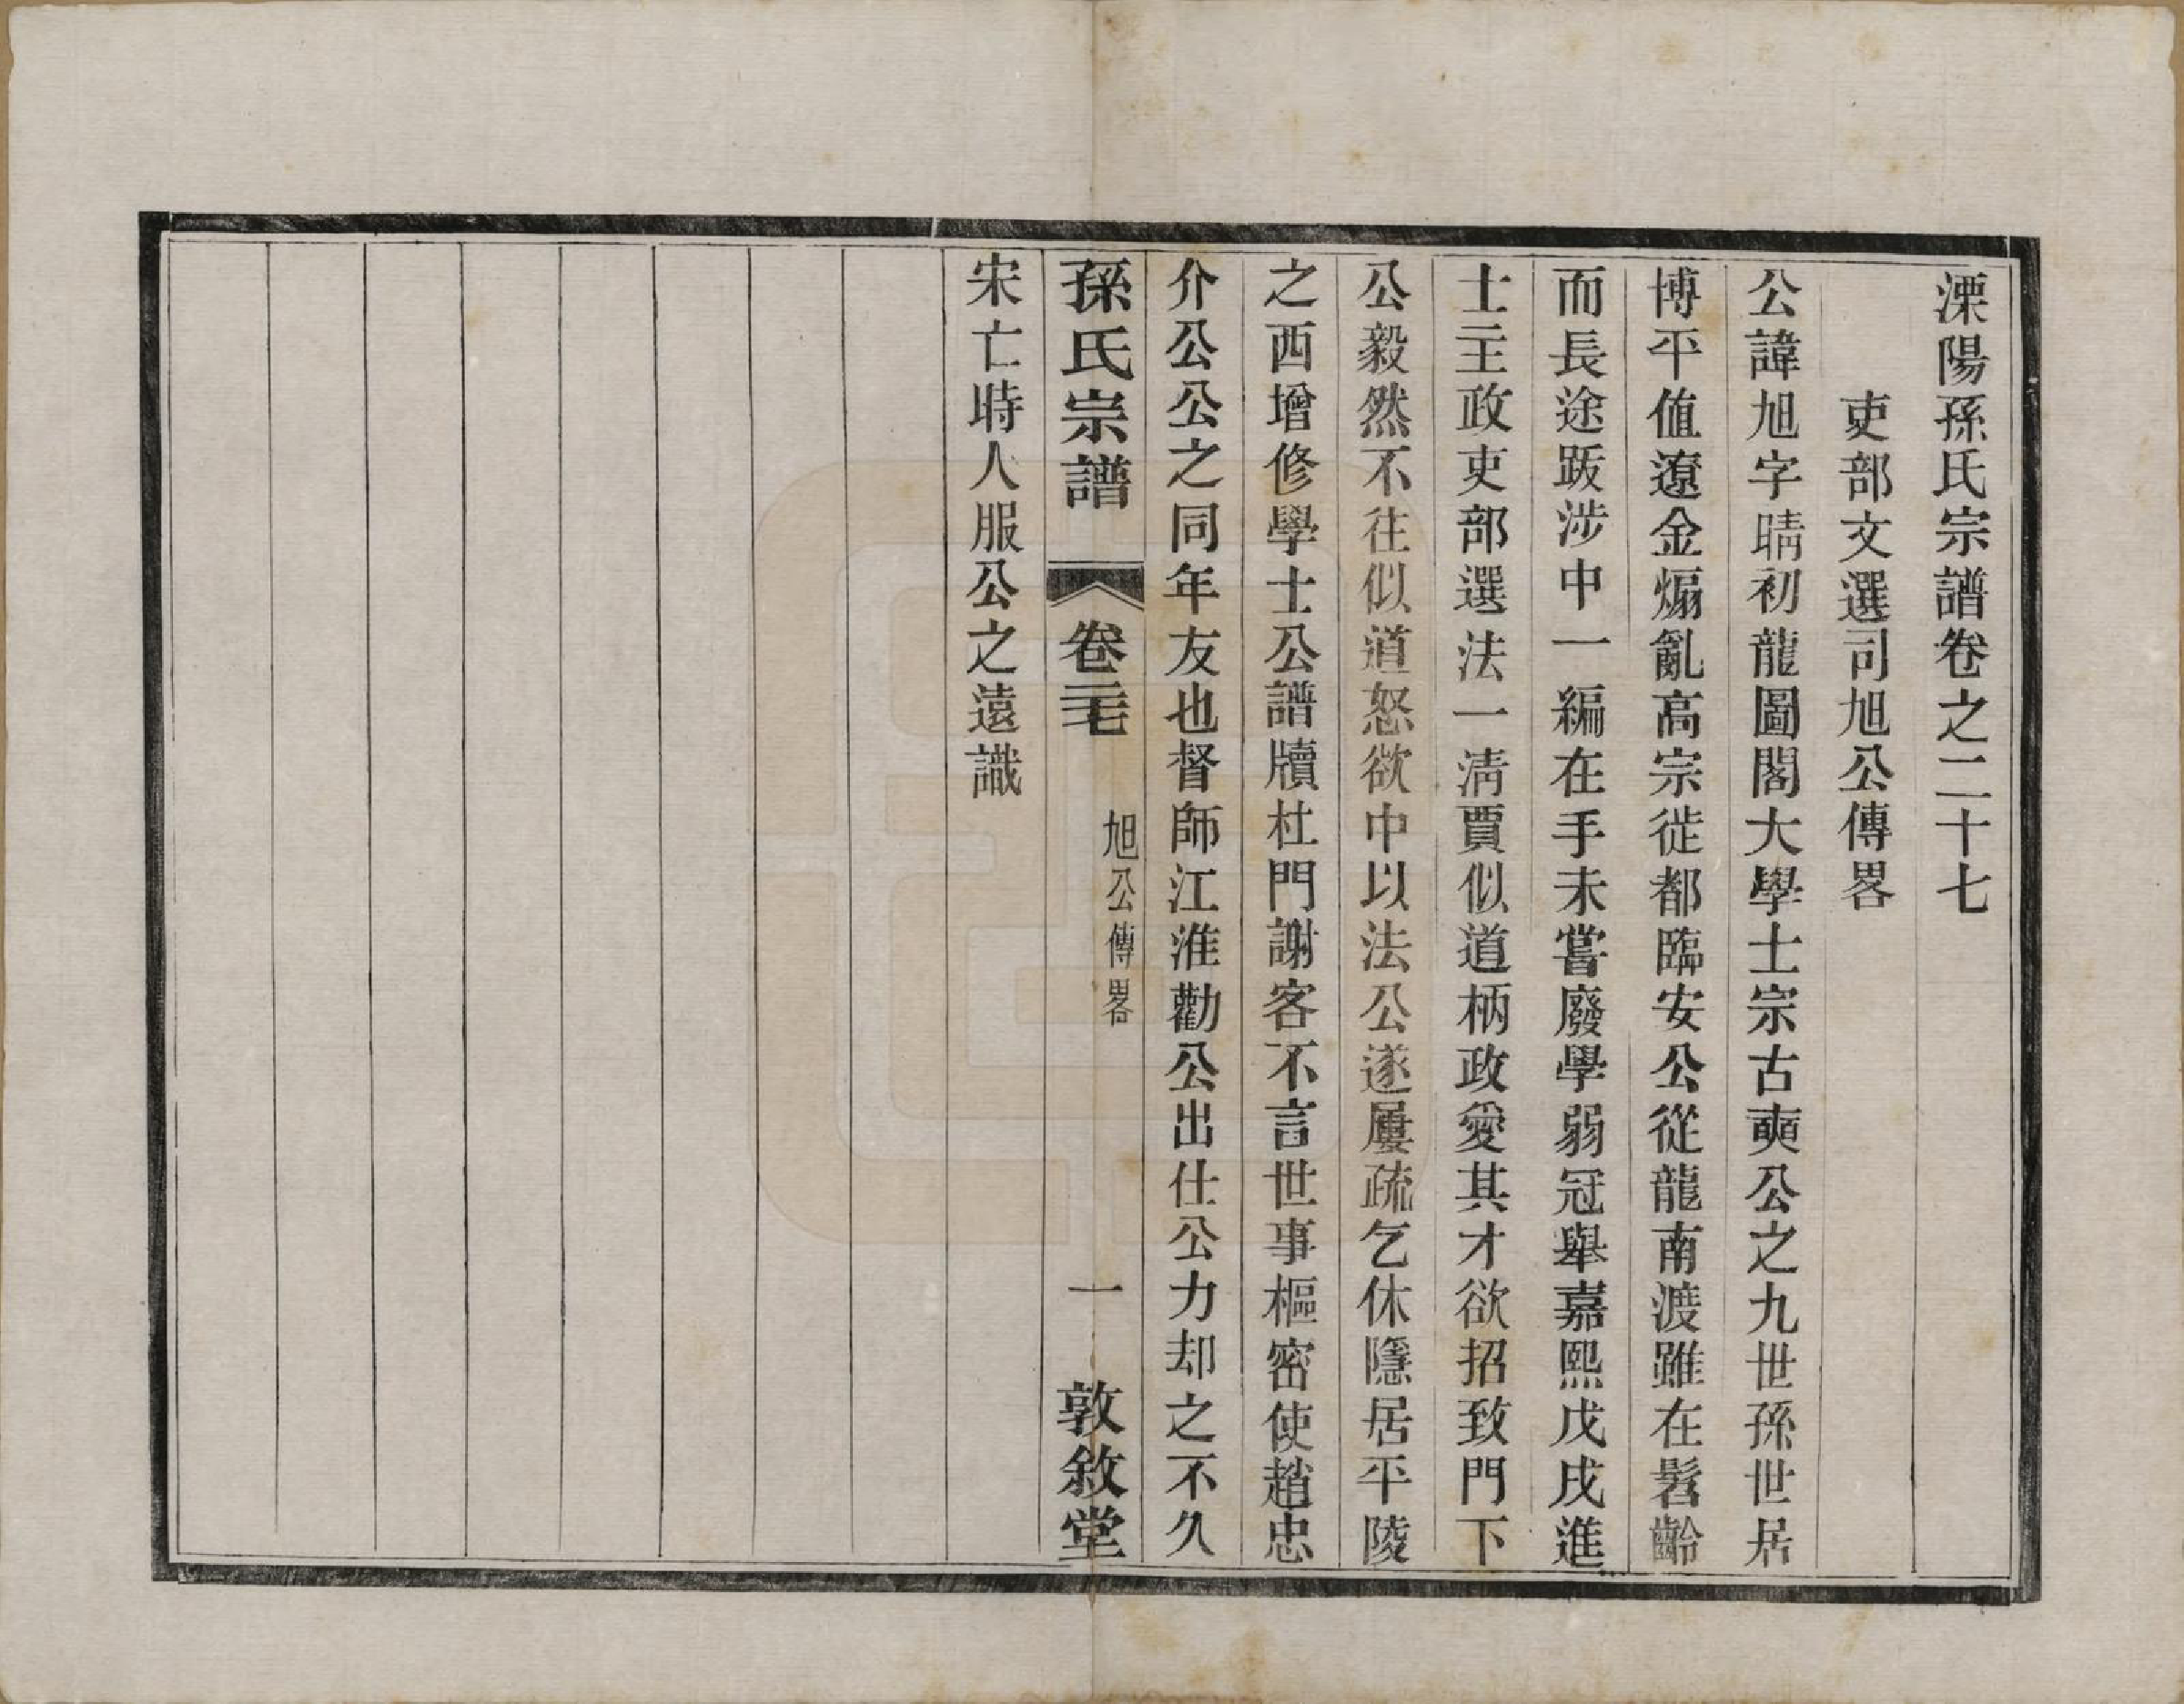 溧陽孫氏宗譜卷之二十七
吏部文選司旭公傳畧
公諱旭字晴初龍圖閣大學士宗古奭公之九世孫世居
博平值遼金煽亂高宗徙都臨安公從龍南渡雖在髫齡
而長途跋涉中一編在手未嘗廢學弱冠舉嘉熙戊戌進
士主政吏部選法一淸賈似道柄政愛其才欲招致門下
公毅然不往似道怒欲中以法公遂屢疏乞休隱居平陵
之西增修學士公譜牘杜門謝客不言世事樞密使趙忠
介公公之同年友也督師江淮勸公出仕公力却之不久
孫氏宗譜 卷二七 旭公傳畧 一 敦敘堂
宋亡時人服公之遠識